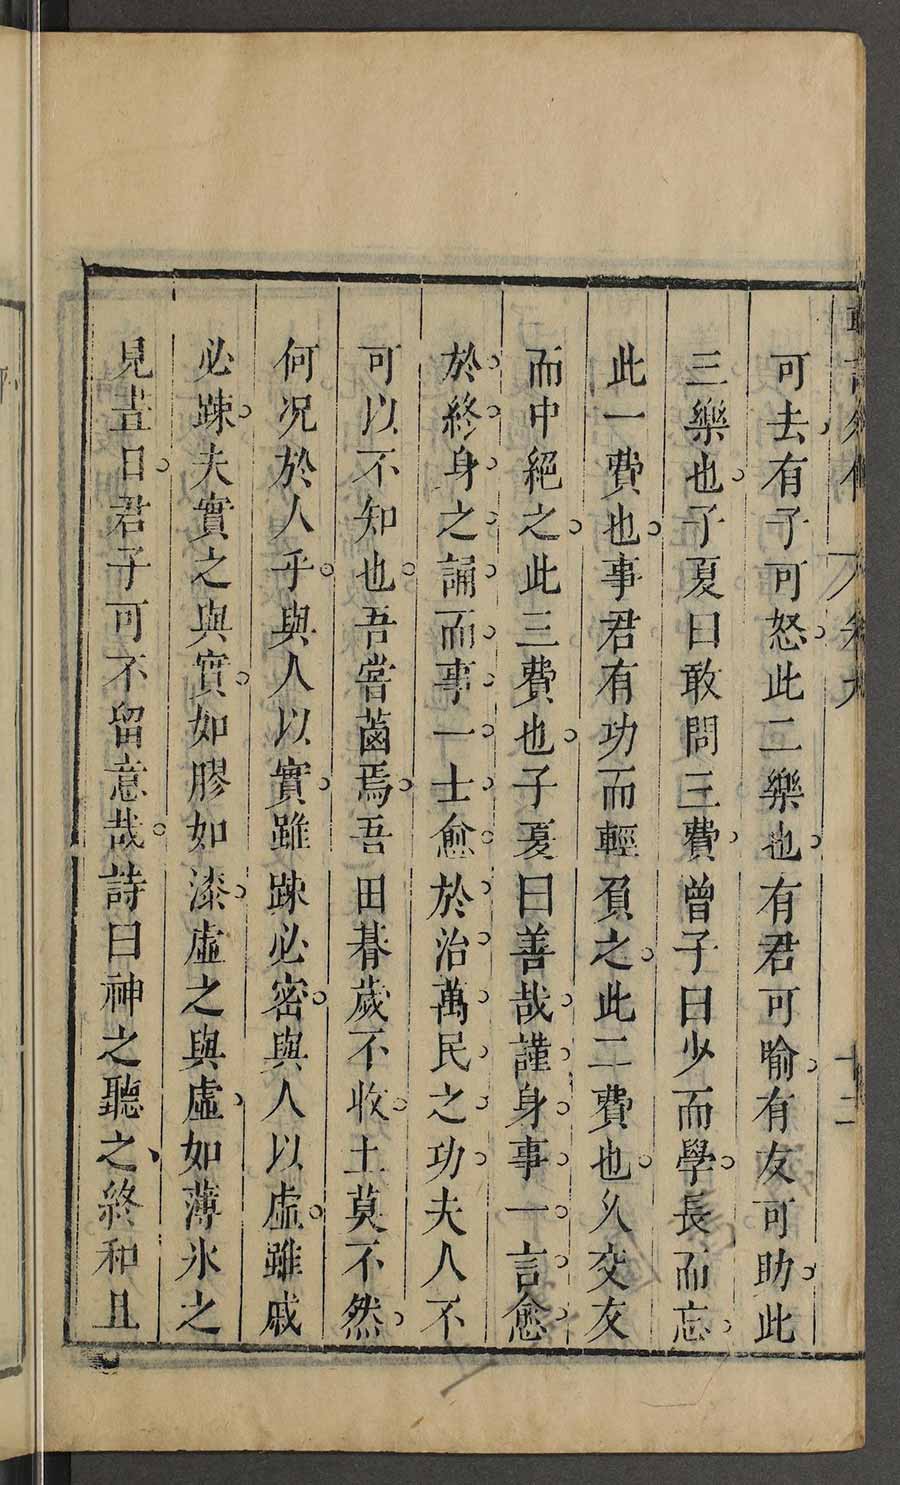 可去有子可怒此二樂也有君可喻有友可助此
三樂也子夏曰敢問三費曾子曰少而學長而忘
此一費也事君有功而輕負之此二費也久交友
而中絕之此三費也子夏曰善哉謹身事一言愈
於終身之誦而事一士愈於治萬民之功夫人不
可以不知也吾嘗菑焉吾田朞歲不收土莫不然
何况於人乎與人以實雖踈必密與人以虛雖戚
必踈夫實之與實如膠如漆虛之與虛如薄氷之
見晝日君子可不留意哉詩曰神之聽之終和且